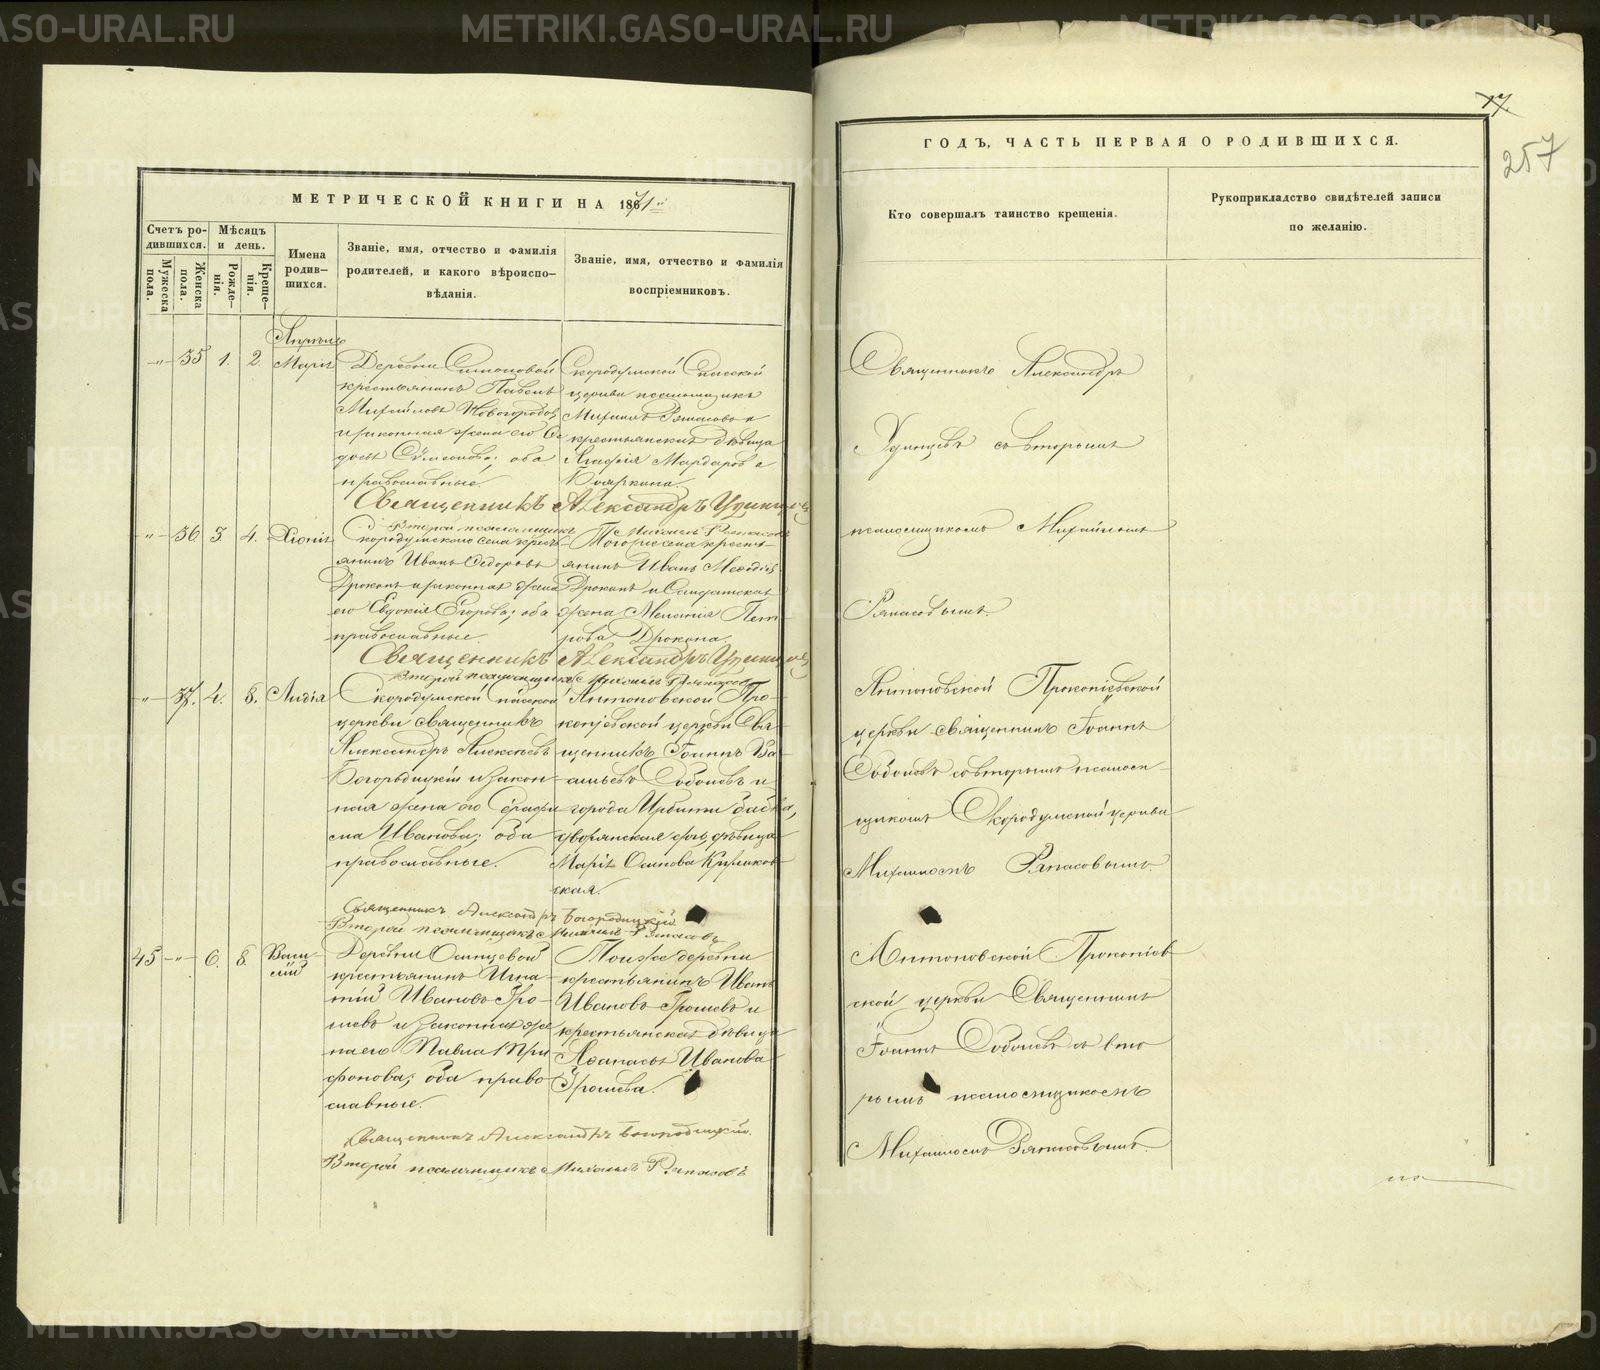 МЕТРИЧЕСКОЙ КНИГИ НА 1871 й
Счетъ ро-
дившихся.
Мѣсяцъ
и день.
Мужеска
пола.
Женска
пола.
Рожде-
нія.
Креще-
нія.
Имена
родив-
шихся.
Званіе, имя, отчество и фамилія
родителей, и какого вѣроиспо-
вѣданія.
Званіе, имя, отчество и фамилія
воспріемниковъ.
Апрѣль
-"- 35 1. 2 Марія
Деревни
крестьянинъ Павелъ
Михайловъ Новогородов
и законная жена его Ѳе
оба
православные.
Скородумской Спасской
церкви псаломщикъ
Михаилъ Ряпасовъ и
крестьянская дѣвица
Агафія
Священникъ Александръ Удинцов
Второй псаломщикъ Михаилъ Ряпасовъ
-"- 36 3. 4. Хіонія
Скородумскаго села крест-
янинъ Иванъ Ѳедоровъ
Дрокинъ и законная жена
его Евдокія Егорова; оба
православные.
Того же села кресть-
янинъ Иванъ
Дрокинъ и Солдатская
жена Пет-
рова Дрокина.
Священникъ Александръ Удинцов
Второй псаломщикъ Михаилъ Ряпасовъ
-"- 37. 4. 8. Лидія
Скородумской Спасской
церкви священникъ
Александръ Алексѣевъ
Богородицкій и закон-
ная жена его Серафи-
ма Иванова; оба
православные.
Антоновской Про-
копіевской церкви Свя-
щенникъ Іоаннъ Ва-
Соболевъ и
города Ирбити
дворянская дочь, дѣвица
Марія Осипова
ская.
Священникъ Александръ Богородицкій
Второй псаломщикъ Михаилъ Ряпасовъ
45 -"- 6. 8. Васи-
лій
Деревни Осинцевой
крестьянинъ Игна-
тій Ивановъ Гро-
шевъ и законная же-
на его Павла Три-
фонова; оба право-
славные.
Той же деревни
крестьянинъ Иванъ
Ивановъ Грошевъ и
крестьянская дѣвица
Аѳанасья Иванова
Грошева.
Священникъ Александръ Богородицкій.
Второй псаломщикъ Михаилъ Ряпасовъ
17.
257
ГОДЪ, ЧАСТЬ ПЕРВАЯ О РОДИВШИХСЯ.
Кто совершалъ таинство крещенія.
Рукоприкладство свидѣтелей записи
по желанію.
Священникъ Александръ
Удинцевъ съ вторымъ
псаломщикомъ Михаиломъ
Ряпасовымъ.
Антоновской Прокопіевской
церкви священникъ Іоаннъ
Соболевъ со вторымъ псалом-
щикомъ Скородумской церкви
Михаиломъ Ряпасовымъ.
Антоновской Прокопіев
ской церкви Священникъ
Іоаннъ Соболевъ съ вто
рымъ псаломщикомъ
Михаиломъ Ряпасовымъ.
METRIKI.GASO-URAL.RU